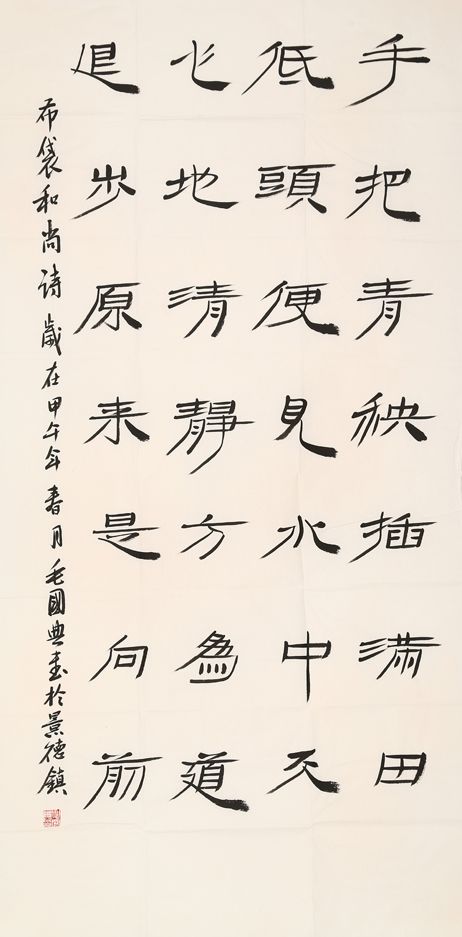 手把青秧插满田
低頭便見水中天
心地清靜方為道
退步原来是向前
布袋和尚诗歲在甲午年春月毛國典书於景德鎮